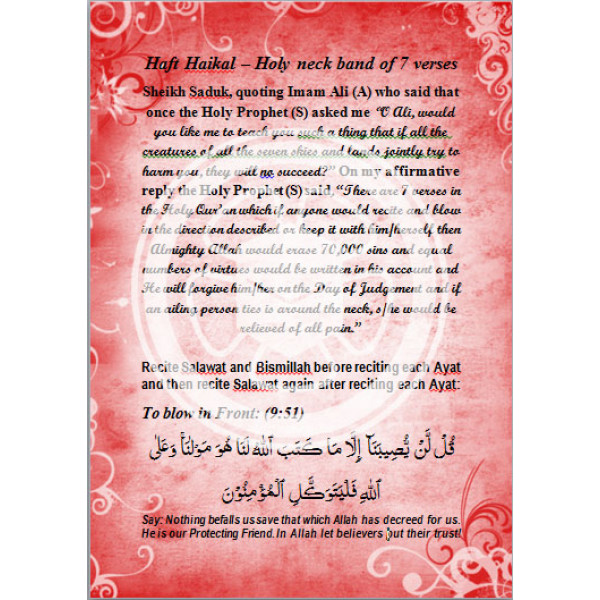 Haft Haikal – Holy neck band of 7 verses
Sheikh Saduk, quoting Imam Ali (A) who said that
once the Holy Prophet (S) asked me “O Ali, would
you like me to teach you such a thing that if all the
creatures of all the seven skies and lands jointly try to
harm you, they will no succeed?” On my affirmative
reply the Holy Prophet (S) said, “There are 7 verses in
the Holy Qur’an which if anyone would recite and blow
in the direction described or keep it with him/herself then
Almighty Allah would erase 70,000 sins and equal
numbers of virtues would be written in his account and
He will forgive him/her on the Day of Judgement and if
an ailing person ties is around the neck, s/he would be
relieved of all pain.”
Recite Salawat and Bismillah before reciting each Ayat
and then recite Salawat again after reciting each Ayat:
To blow in Front: (9:51)
قُل لَّن يُّصِيبَنَآ إِلَّا مَا كَتَبَ ٱللَّهُ لَنَا هُوَ مَوْلَىٰنَا ۚ وَعَلَى
ٱللَّهِ فَلْيَتَوَكَّلِ ٱلْمُؤْمِنُوْنَ
Say: Nothing befalls us save that which Allah has decreed for us.
He is our Protecting Friend. In Allah let believers put their trust!